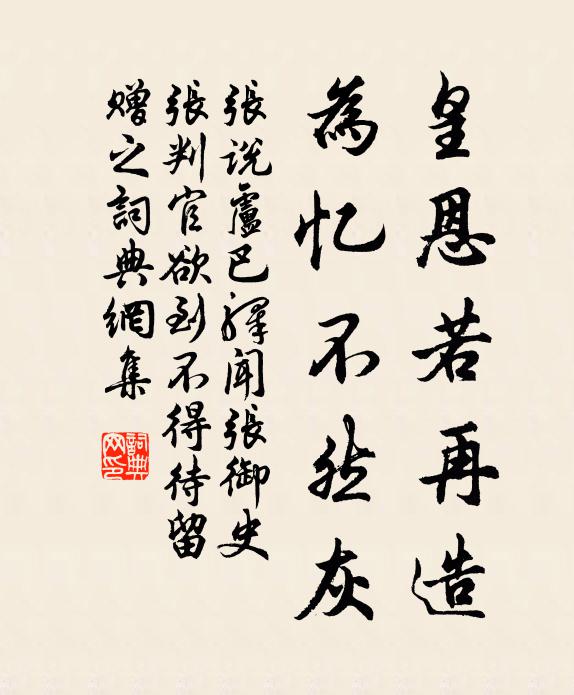 皇恩若再造
為忆不然灰
張说盧巴驛闻張御史
張判官欲到不得待留
贈之詞典網集
詞典网印